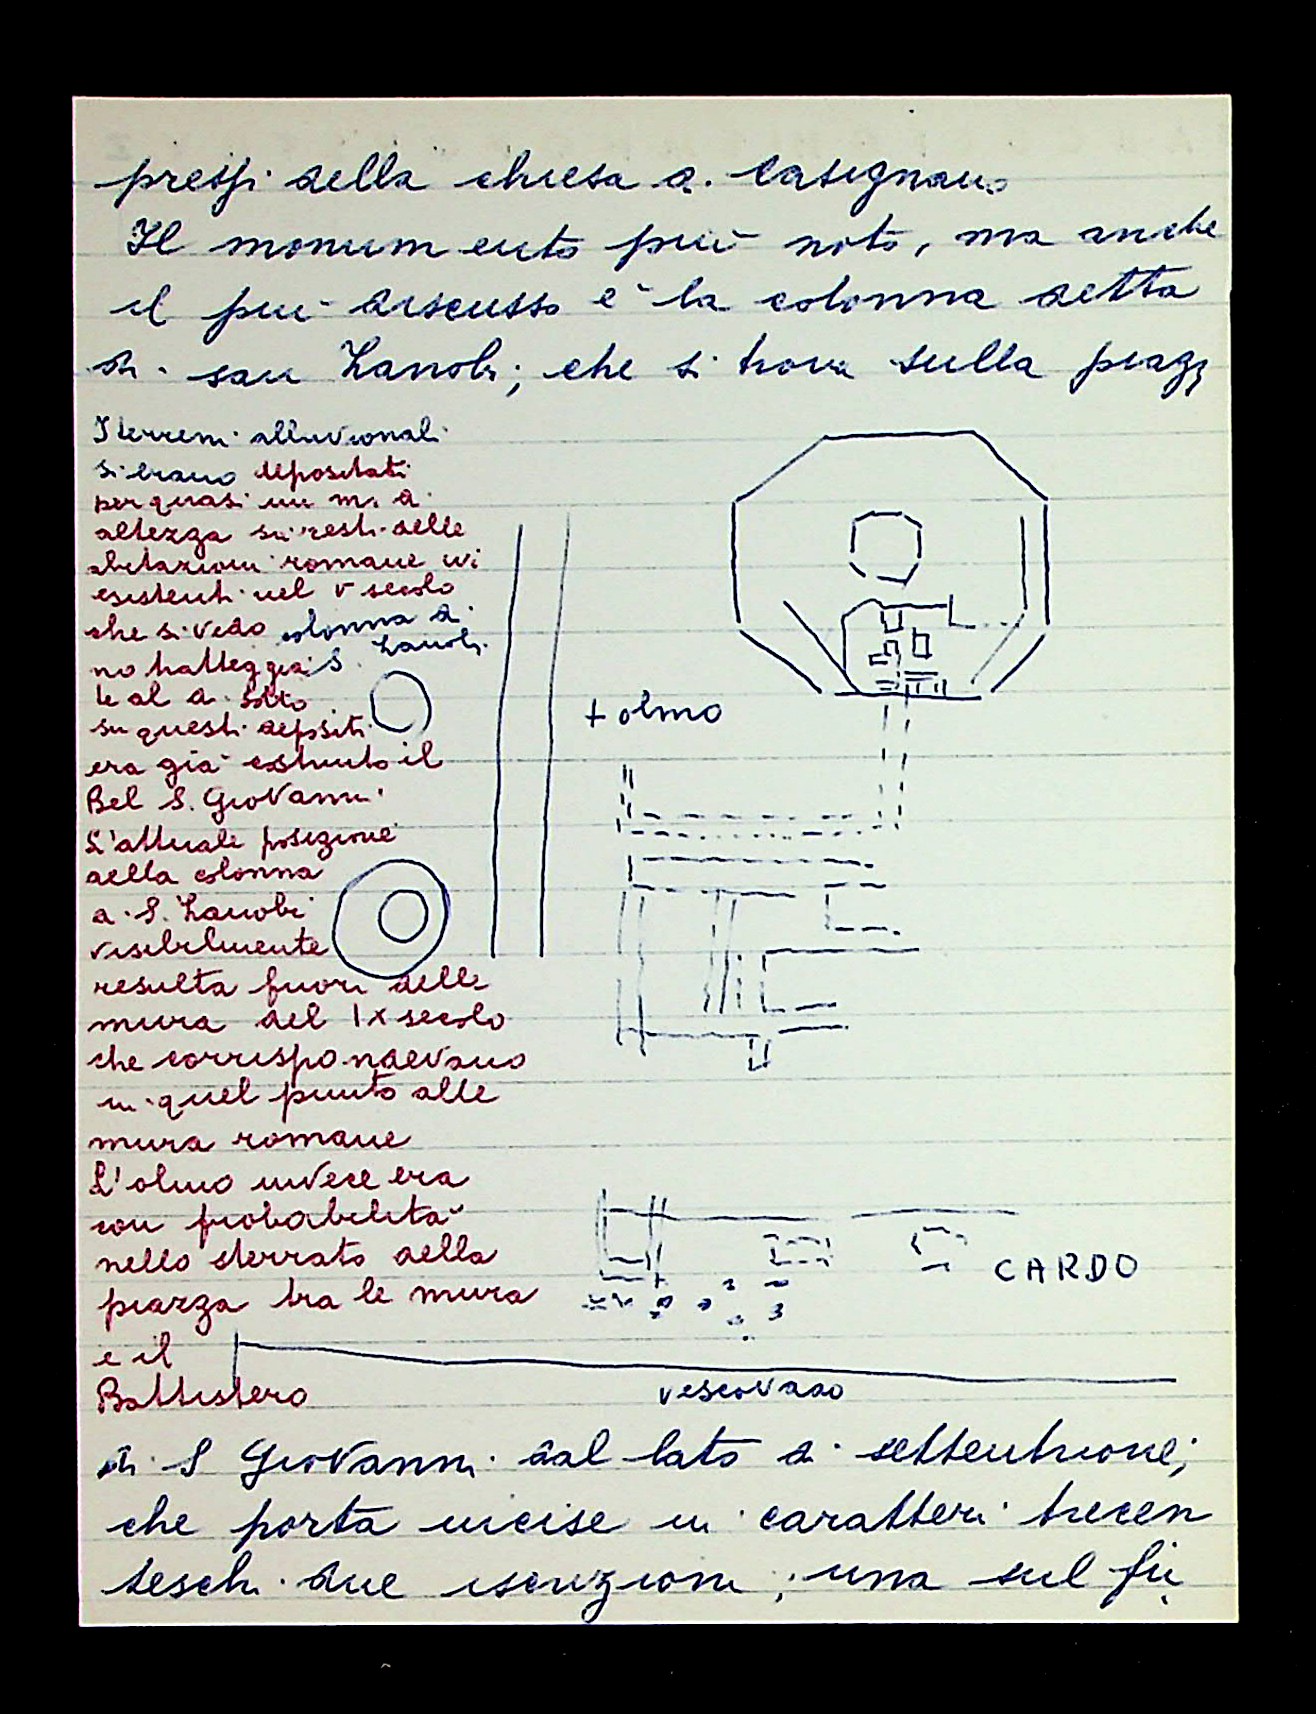 pressi della chiesa di Casignano
Il monumento più noto, ma anche
il più discusso è la colonna detta
di san Zanobi; che si trova sulla piazz
I terreni alluvionali
si erano depositati
per quasi un m. di
altezza sui resti delle
abitazioni romane ivi
esistenti nel V secolo
che si vedo
no tratteggia
te al di sotto
su questi depositi
era già costruito il
Bel S. Giovanni.
L'attuale posizione
della colonna
di S. Zanobi
visibilmente
resulta fuori delle
mura del IX secolo
che corrispondevano
in quel punto alle
mura romane
L'olmo invece era
con probabilità
nello sterrato della
piazza tra le mura
e il
Battistero
colonna di
S. Zanobi
+ olmo
CARDO
vescovado
di S Giovanni dal lato di settentrione;
che porta incise in caratteri trecen
teschi due iscrizioni; una sul fu